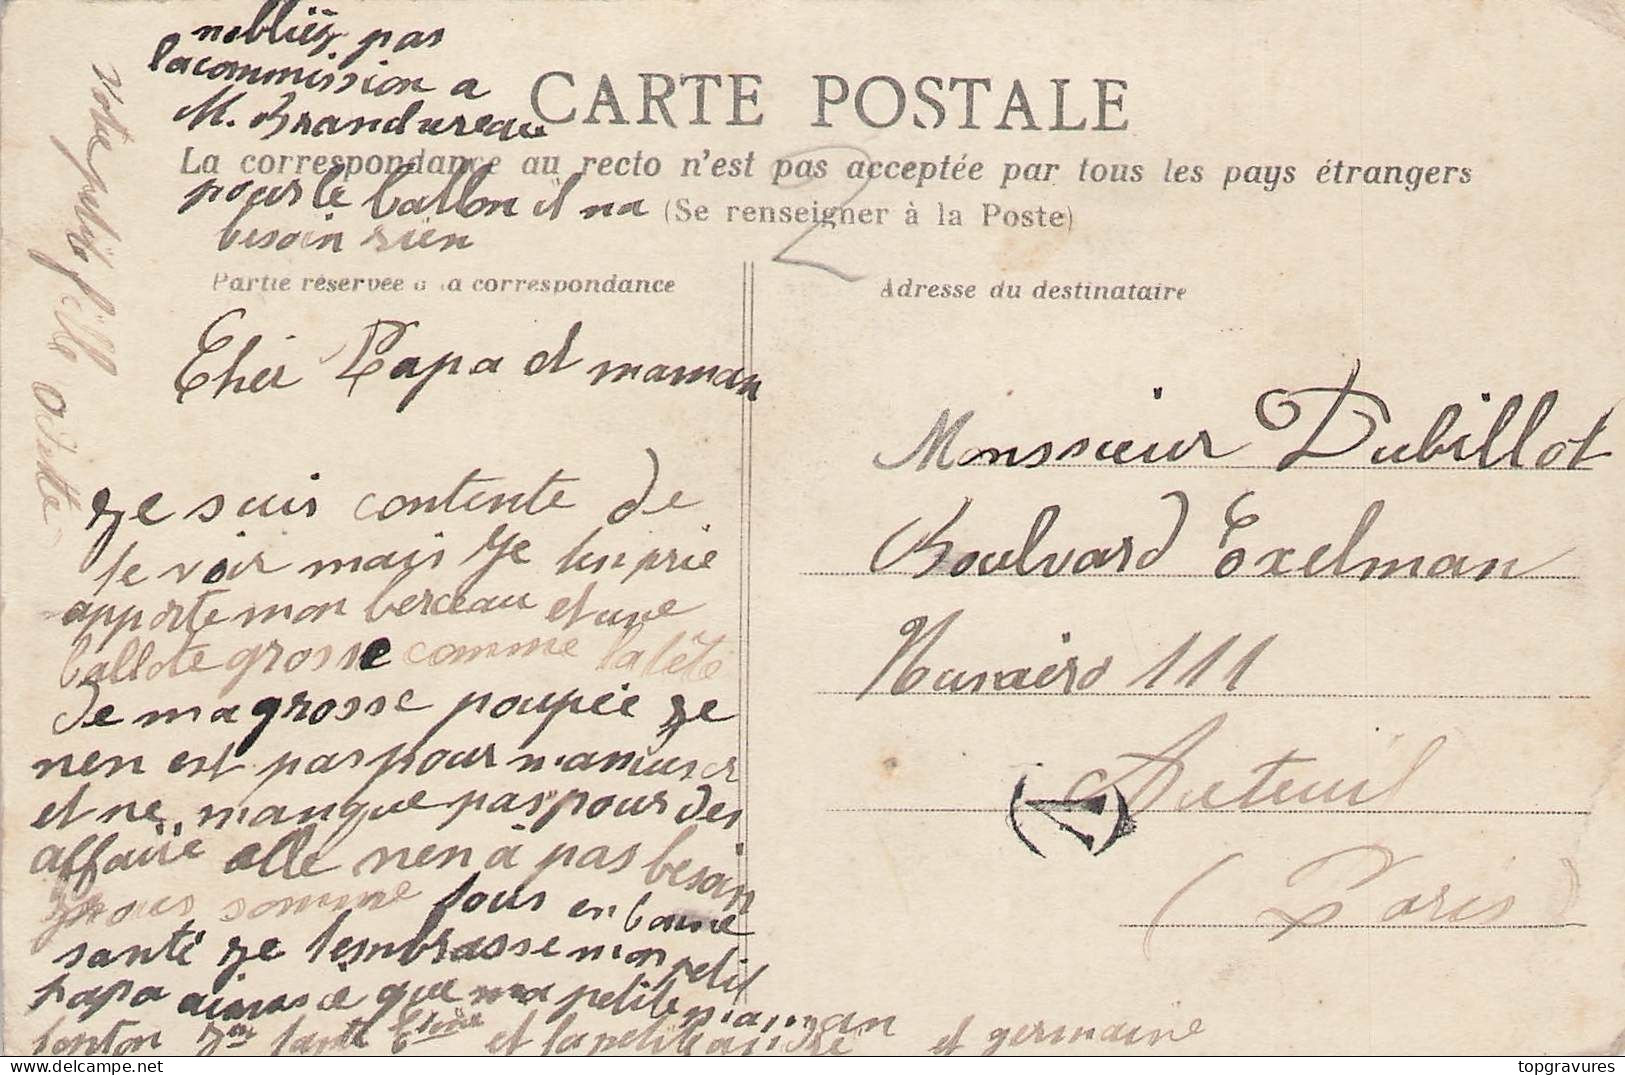 n'obliez pas
la commission a
M. Brandureau
CARTE POSTALE
La correspondance au recto n'est pas acceptée par tous les pays étrangers
pour le ballon il na
(Se renseigner à la Poste)
besoin rien
2
Partie réservée à la correspondance
Adresse du destinataire
Cher Papa et maman
je suis contente de
te voir mais je ten prie
apporte mon berceau et une
ballote grosse comme la tête
de ma grosse poupée je
nen est pas pour mamuser
et ne manque pas pour des
affaire elle nen à pas besoin
nous somme tous en bonne
santé je tembrasse mon petit
papa ainsi que ma petite maman
tonton et la petite andré et germaine
votre petite fille odette
Monsieur Dubillot
Boulvard Exelman
Numairo 111
Auteuil
(Paris)
T
topgravures